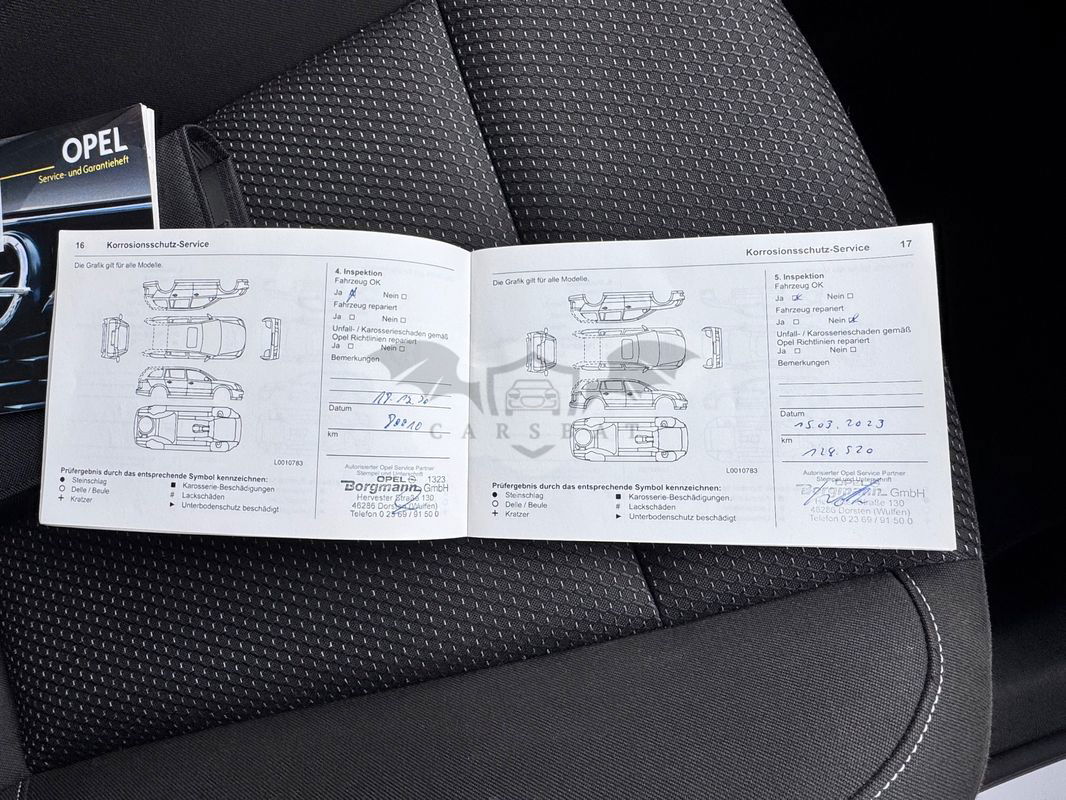 OPEL
Service- und Garantieheft
16 Korrosionsschutz-Service
Die Grafik gilt für alle Modelle.
L0010783
Prüfergebnis durch das entsprechende Symbol kennzeichnen:
● Steinschlag
○ Delle / Beule
+ Kratzer
■ Karosserie-Beschädigungen
# Lackschäden
► Unterbodenschutz beschädigt
4. Inspektion
Fahrzeug OK
Ja Nein
Fahrzeug repariert
Ja Nein
Unfall- / Karosserieschaden gemäß
Opel Richtlinien repariert
Ja Nein
Bemerkungen
Datum
km
Autorisierter Opel Service Partner
Stempel und Unterschrift
OPEL 1323
Borgmann GmbH
Hervester Straße 130
46286 Dorsten (Wulfen)
Telefon 0 23 69 / 91 50 0
Korrosionsschutz-Service 17
Die Grafik gilt für alle Modelle.
L0010783
Prüfergebnis durch das entsprechende Symbol kennzeichnen:
● Steinschlag
○ Delle / Beule
+ Kratzer
■ Karosserie-Beschädigungen.
# Lackschäden
► Unterbodenschutz beschädigt
5. Inspektion
Fahrzeug OK
Ja Nein
Fahrzeug repariert
Ja Nein
Unfall- / Karosserieschaden gemäß
Opel Richtlinien repariert
Ja Nein
Bemerkungen
Datum
15.03.2023
km
128.520
Autorisierter Opel Service Partner
Stempel und Unterschrift
OPEL
Borgmann GmbH
Straße 130
46286 Dorsten (Wulfen)
Telefon 0 23 69 / 91 50 0
CARSBAT